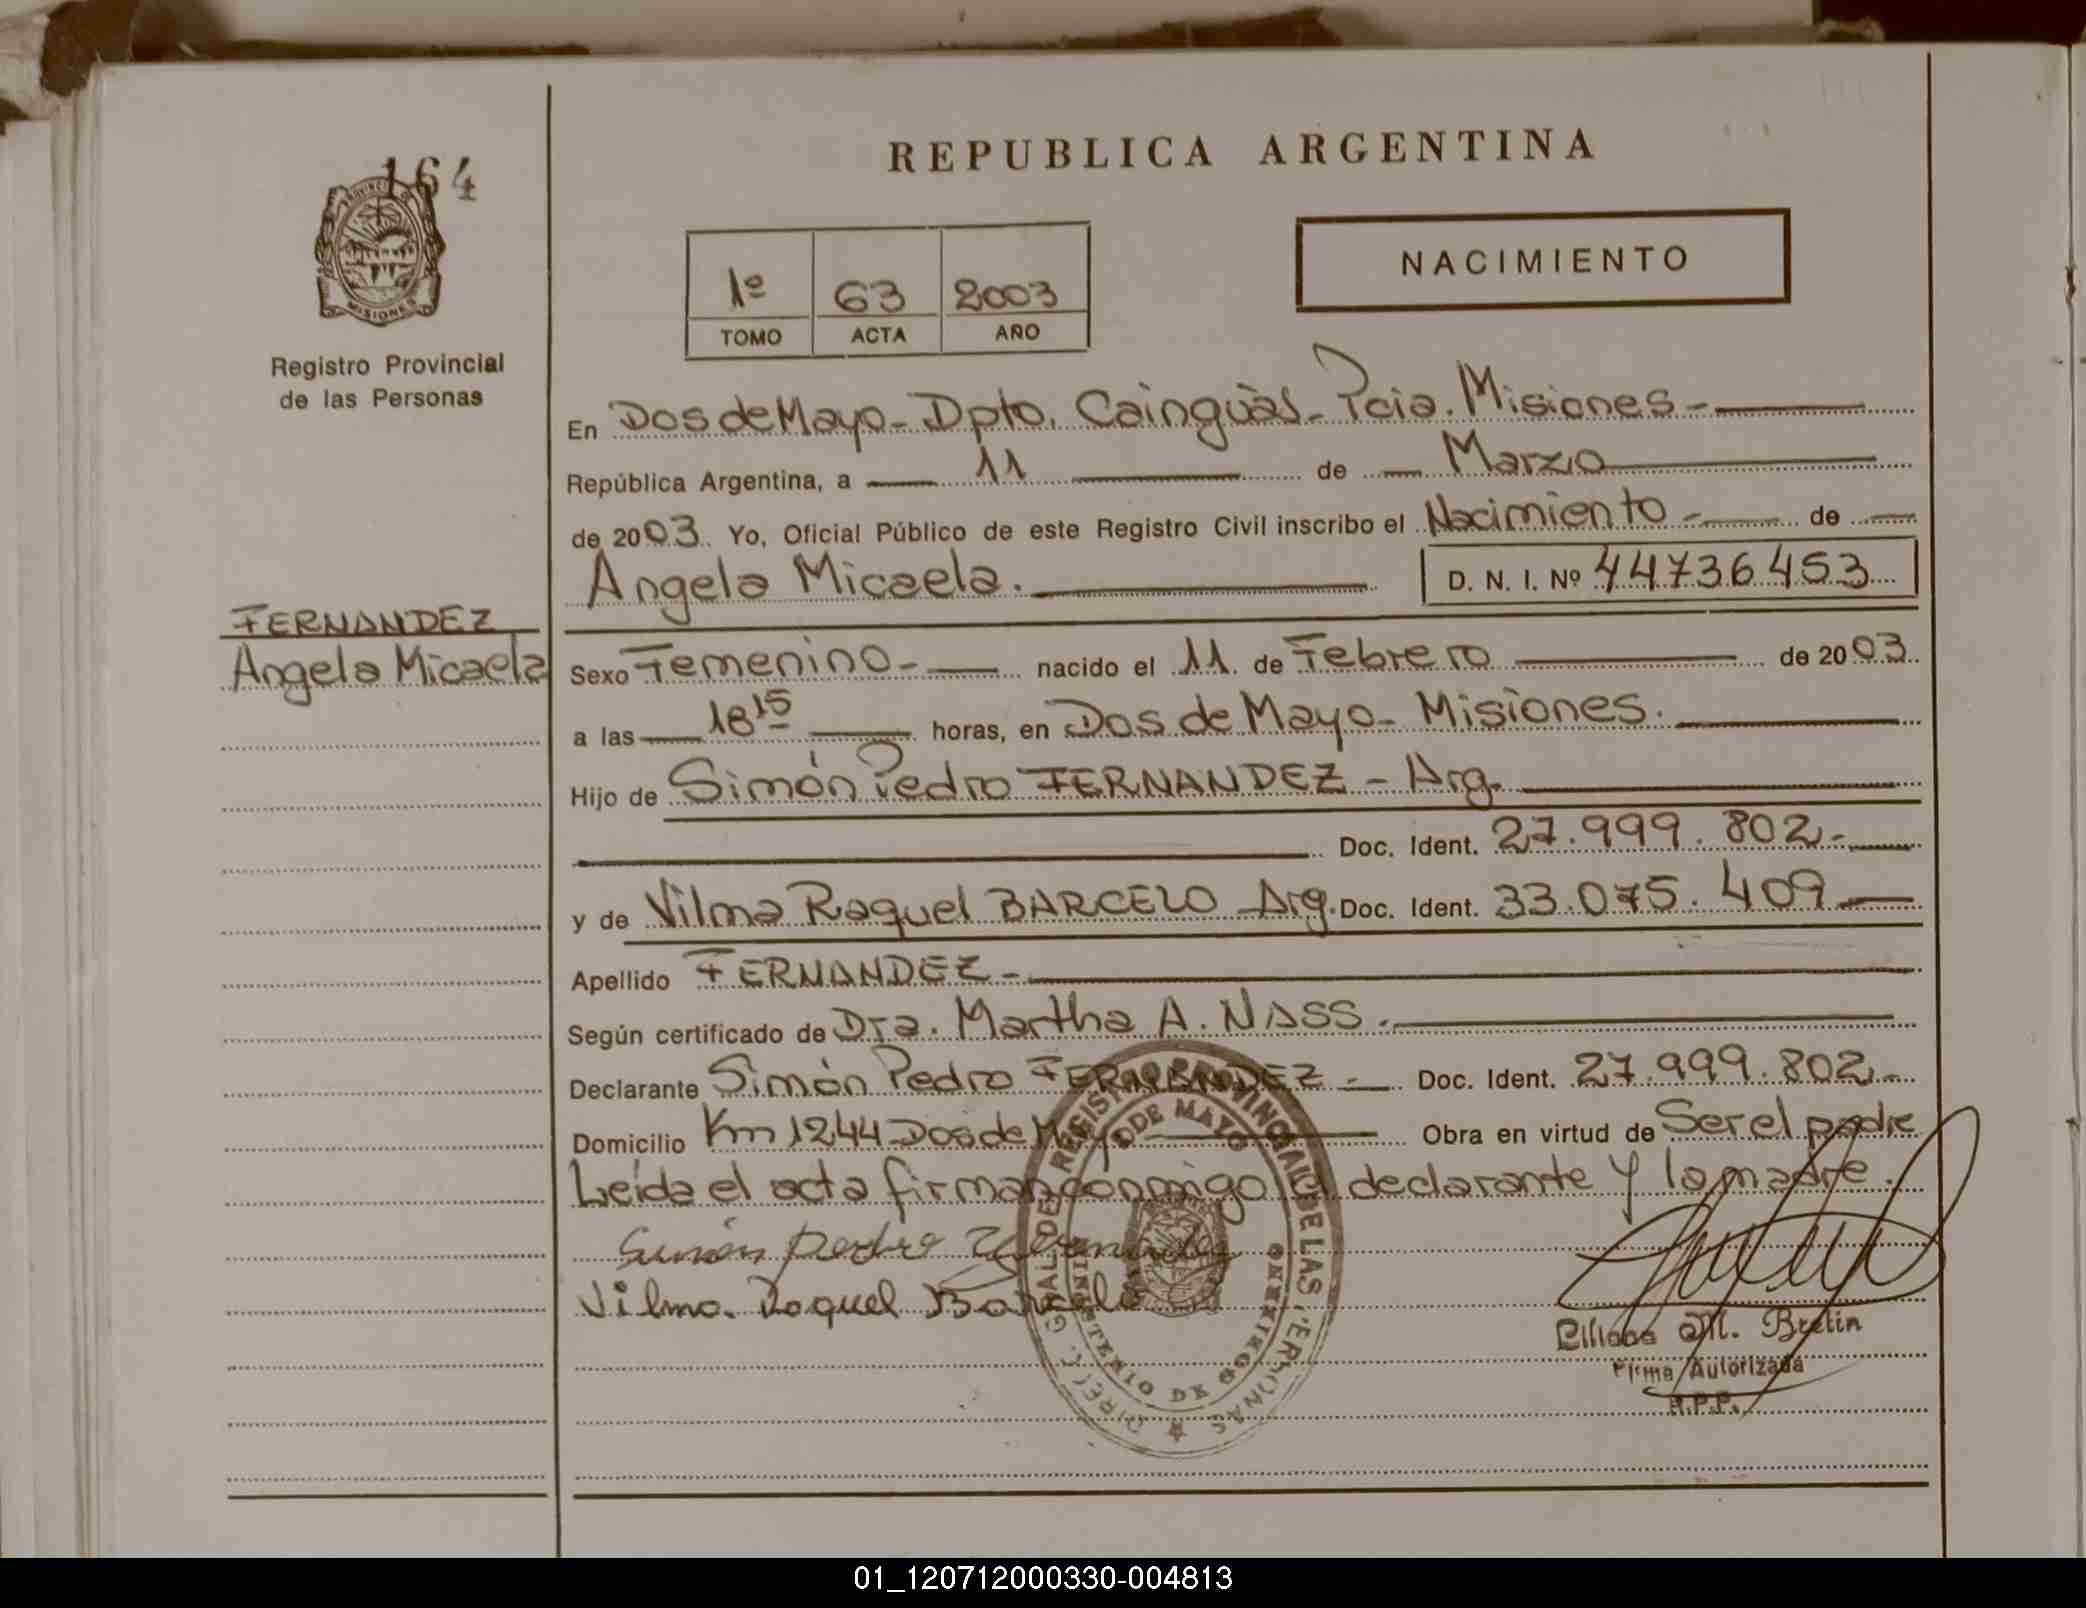 164
PROVINCIA DE
MISIONES
Registro Provincial
de las Personas
FERNANDEZ
Angela Micaela
REPUBLICA ARGENTINA
1º 63 2003
TOMO ACTA AÑO
NACIMIENTO
En Dos de Mayo - Dpto. Cainguàs - Pcia. Misiones -
República Argentina, a 11 de Marzo
de 2003. Yo, Oficial Público de este Registro Civil inscribo el Nacimiento - de
Angela Micaela. D. N. I. Nº 44736453
Sexo Femenino - nacido el 11 de Febrero de 2003
a las 18 15 horas, en Dos de Mayo - Misiones.
Hijo de Simón Pedro FERNANDEZ - Arg.
Doc. Ident. 27.999.802.-
y de Vilma Raquel BARCELO Arg. Doc. Ident. 33.075.409
Apellido FERNANDEZ -
Según certificado de Dra. Martha A. NASS.
Declarante Simón Pedro FERNANDEZ - Doc. Ident. 27.999.802.-
Domicilio Km 1244 Dos de Mayo Obra en virtud de Ser el padre
Leída el acta firman conmigo el declarante y la madre.
Simón Pedro Fernandez
Vilma Raquel Barcelo
DIREC. GRAL DEL REGISTRO PROVINCIAL DE LAS PERSONAS
DOS DE MAYO
MINISTERIO DE GOBIERNO
M. Bretin
Firma Autorizada
R.P.P.
01_120712000330-004813